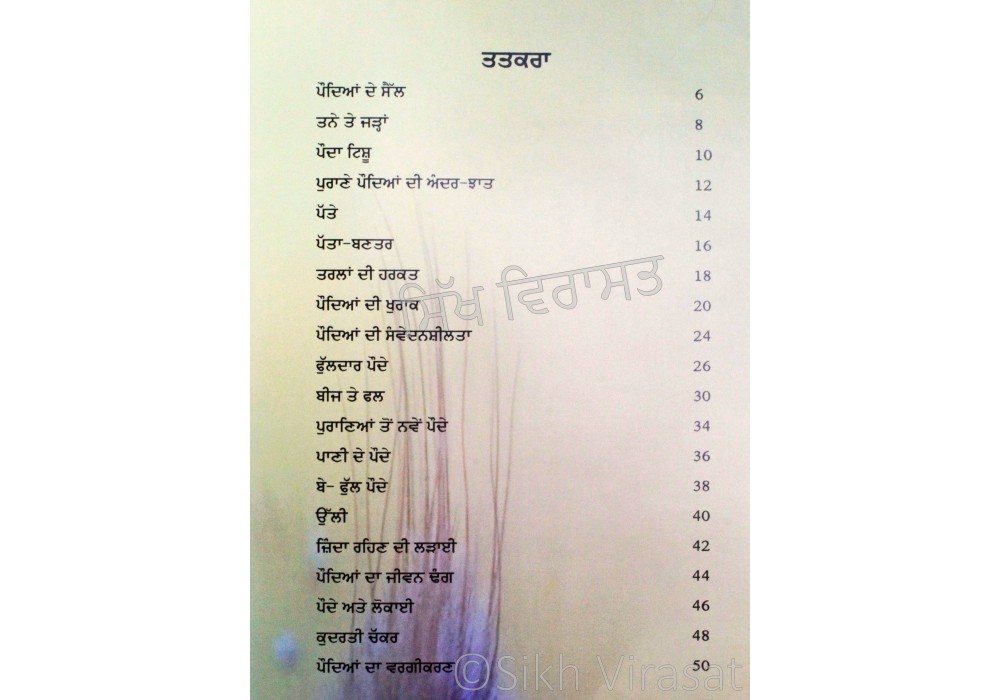 ਤਤਕਰਾ
ਪੌਦਿਆਂ ਦੇ ਸੈੱਲ 6
ਤਨੇ ਤੇ ਜੜ੍ਹਾਂ 8
ਪੌਦਾ ਟਿਸ਼ੂ 10
ਪੁਰਾਣੇ ਪੌਦਿਆਂ ਦੀ ਅੰਦਰ-ਝਾਤ 12
ਪੱਤੇ 14
ਪੱਤਾ-ਬਣਤਰ 16
ਤਰਲਾਂ ਦੀ ਹਰਕਤ 18
ਪੌਦਿਆਂ ਦੀ ਖੁਰਾਕ 20
ਪੌਦਿਆਂ ਦੀ ਸੰਵੇਦਨਸ਼ੀਲਤਾ 24
ਫੁੱਲਦਾਰ ਪੌਦੇ 26
ਬੀਜ ਤੇ ਫਲ 30
ਪੁਰਾਣਿਆਂ ਤੋਂ ਨਵੇਂ ਪੌਦੇ 34
ਪਾਣੀ ਦੇ ਪੌਦੇ 36
ਬੇ- ਫੁੱਲ ਪੌਦੇ 38
ਉੱਲੀ 40
ਜ਼ਿੰਦਾ ਰਹਿਣ ਦੀ ਲੜਾਈ 42
ਪੌਦਿਆਂ ਦਾ ਜੀਵਨ ਢੰਗ 44
ਪੌਦੇ ਅਤੇ ਲੋਕਾਈ 46
ਕੁਦਰਤੀ ਚੱਕਰ 48
ਪੌਦਿਆਂ ਦਾ ਵਰਗੀਕਰਣ 50
ਸਿੱਖ ਵਿਰਾਸਤ
©Sikh Virasat